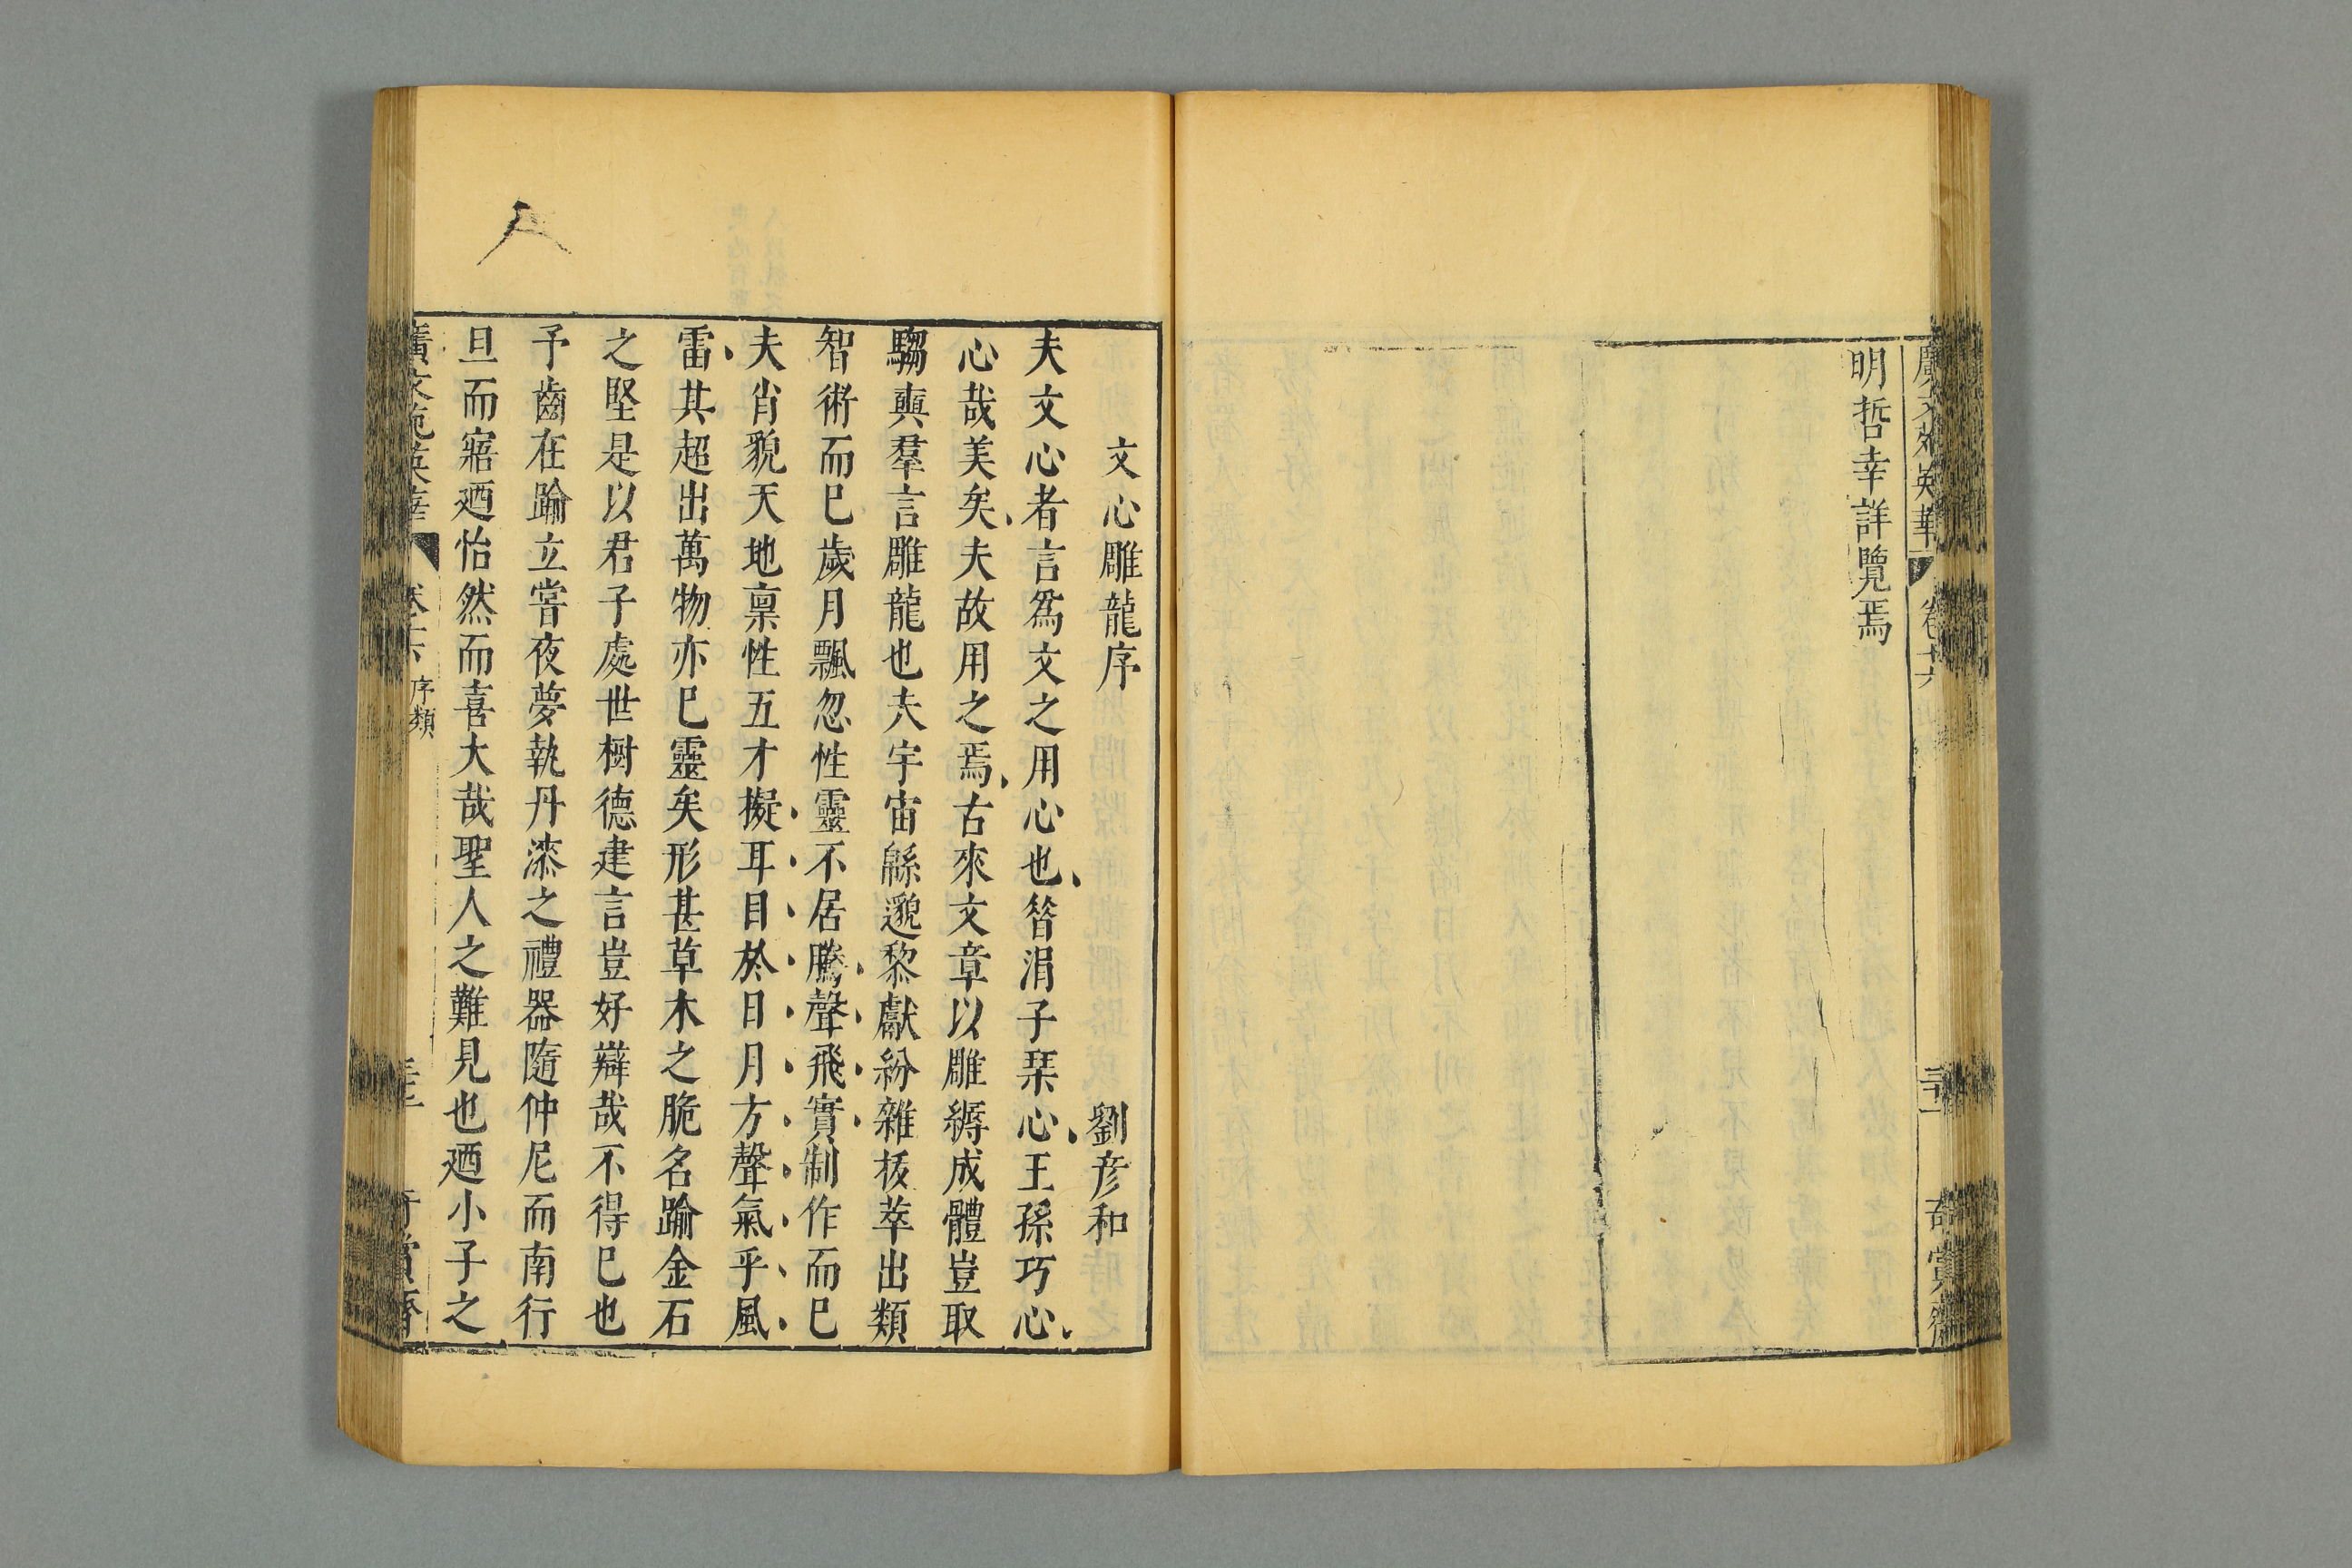 廣文苑英華 卷十六 三十一 奇賞齋
明哲幸詳覽焉
文心雕龍序 劉彦和
夫文心者言爲文之用心也昝涓子琹心王孫巧心
心哉美矣夫故用之焉古來文章以雕縟成體豈取
騶奭羣言雕龍也夫宇宙緜邈黎獻紛雜拔萃出類
智術而已歲月飄忽性靈不居騰聲飛實制作而已
夫肖貌天地稟性五才擬耳目於日月方聲氣乎風
雷其超出萬物亦已靈矣形甚草木之脆名踰金石
之堅是以君子處世樹德建言豈好辯哉不得已也
予齒在踰立嘗夜夢執丹漆之禮器隨仲尼而南行
旦而寤廼怡然而喜大哉聖人之難見也廼小子之
廣文苑英華 序類 奇賞齋